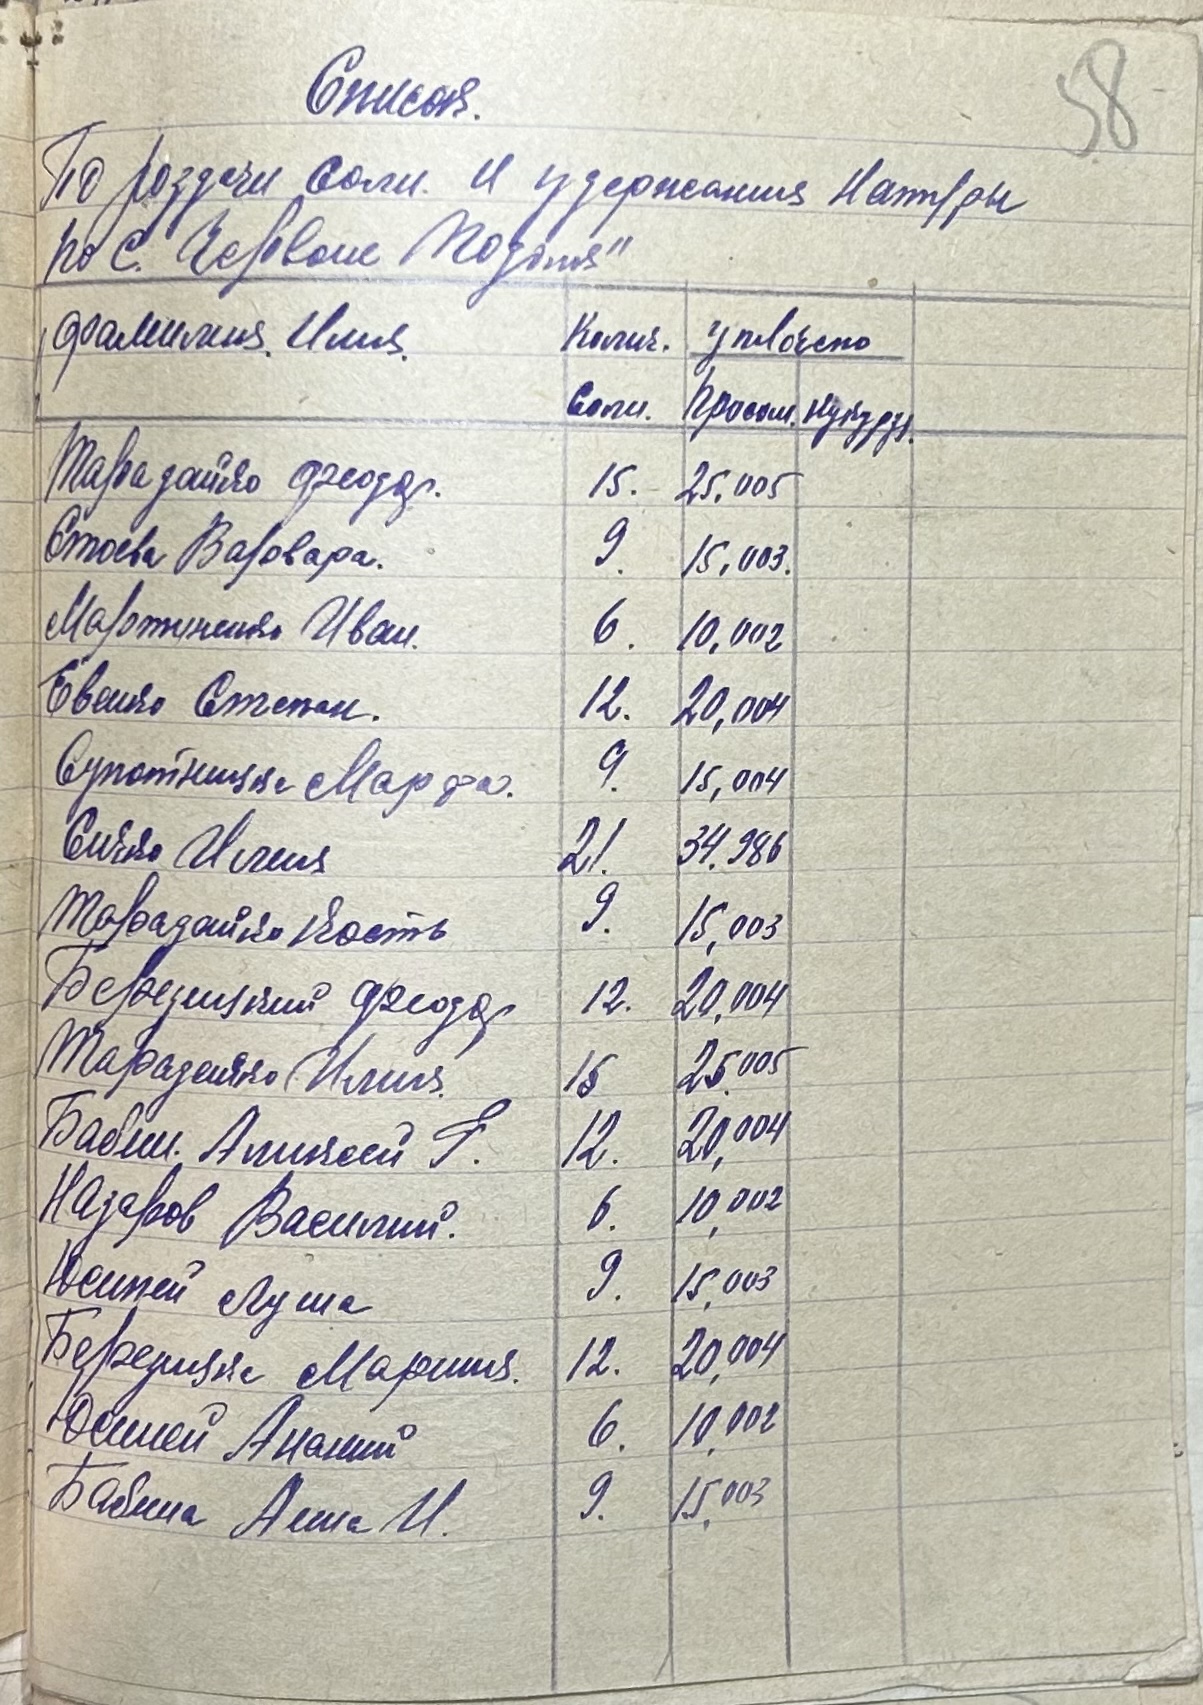 58
Список.
По роздачи Соли. И удержания Натуры
по С. Червоне Поділля"
Фамилия. Имя. Колич. Уплочено
Соли. Просом. Кукурузы.
Тарадайко Феодор. 15. 25,005
Стоева Варвара. 9. 15,003.
Мартиненко Иван. 6. 10,002
Евенко Степан. 12. 20,004
Марфа. 9. 15,004
Сичко Илия 21. 34.986
Тарадайко Кость 9. 15,003
Березицкий Феодор 12. 20,004
Тарадайко Илия. 15 25.005
Бабин. Аликсей Г. 12. 20,004
Назаров Василий. 6. 10,002
Юсипей Луша 9. 15,003
Березицка Мария. 12. 20,004
Юсипей Ананий 6. 10,002
Бабина Анна И. 9. 15,003